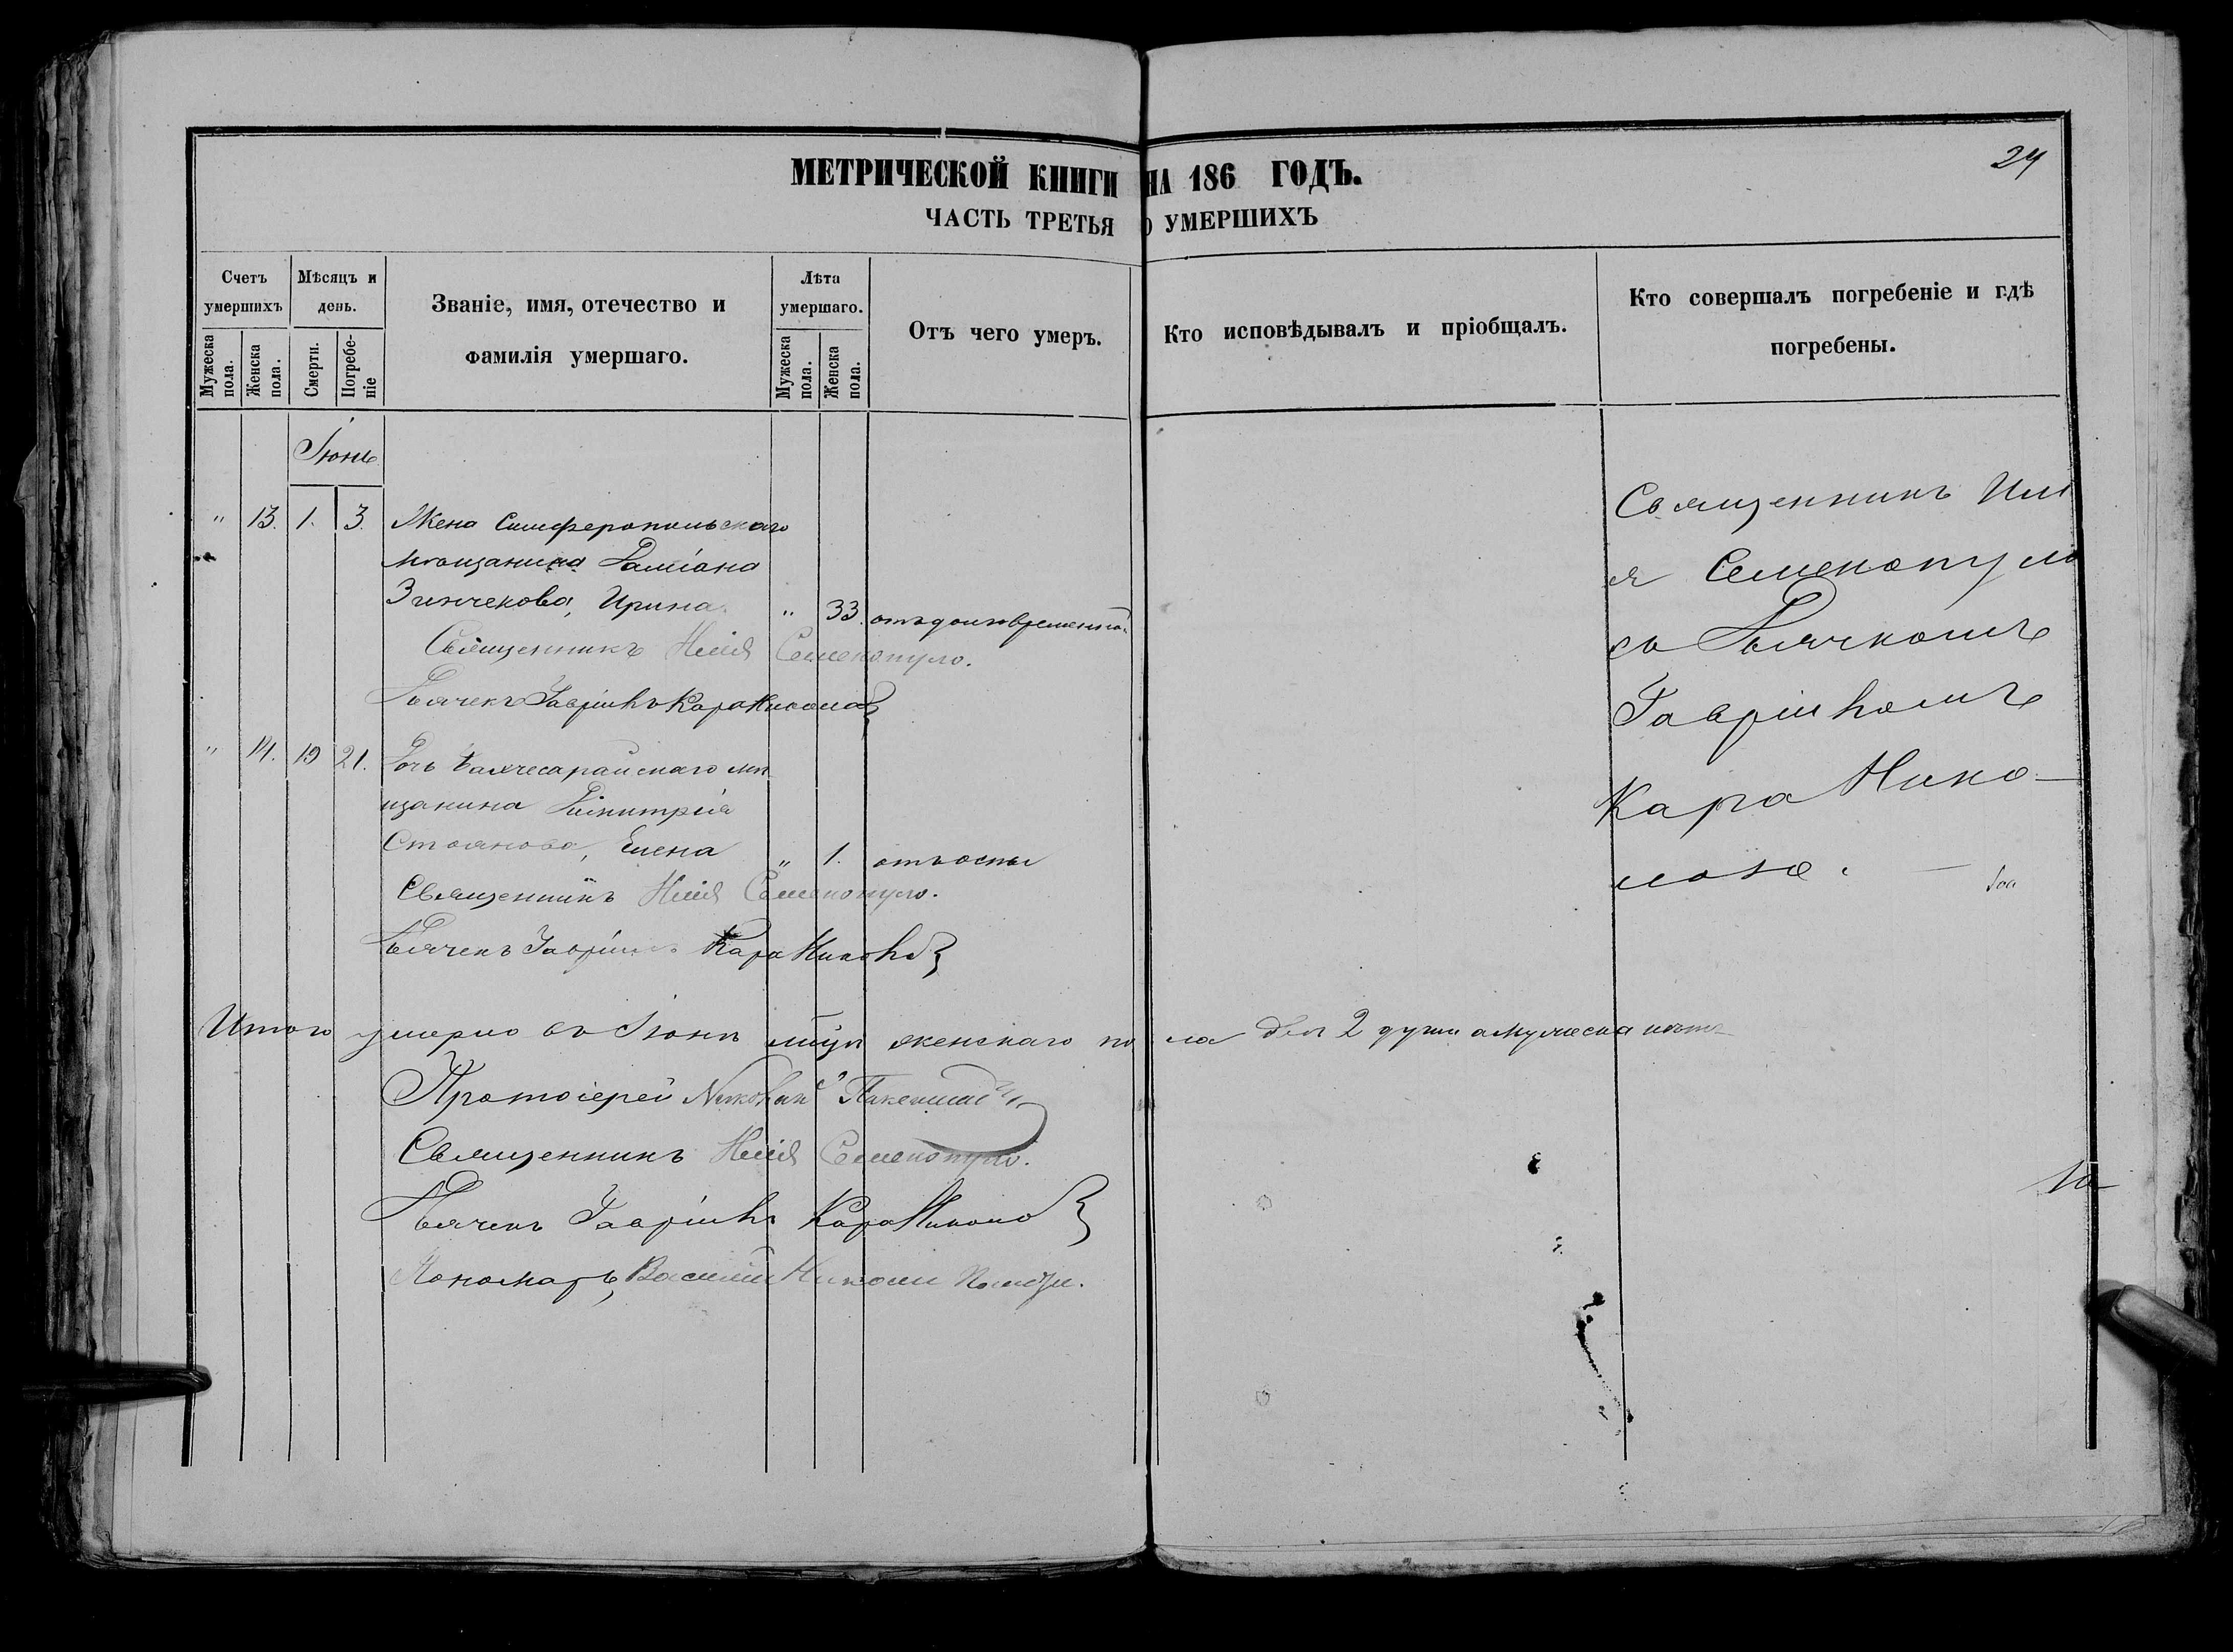 24
МЕТРИЧЕСКОЙ КНИГИ НА 186 ГОДЪ.
ЧАСТЬ ТРЕТЬЯ О УМЕРШИХЪ
Счетъ умершихъ
Мужеска пола.
Женска пола.
Мѣсяцъ и день.
Смерти.
Погребе-ніе
Званіе, имя, отечество и фамилія умершаго.
Лѣта умершаго.
Мужеска пола.
Женска пола.
Отъ чего умеръ.
Кто исповѣдывалъ и пріобщалъ.
Кто совершалъ погребеніе и гдѣ погребены.
Іюнь
" 13. 1. 3. Жена Симферопольскаго
мѣщанина Даміана
Зинчекова, Ирина " 33.
Священникъ Илія Семенопуло.
Дьячекъ Гавріилъ Кара Никола
" 14. 19 21. Дочь Бахчесарайскаго мѣ
щанина Димитрія
Стоянова, Елена " 1. отъ оспы
Священникъ Илія Семенопуло.
Дьячекъ Гавріилъ Кара Никола
Священникъ Илі
я Семенопуло
съ Дьячкомъ
Гавріиломъ
Кара Нико-
лою.
Итого умерло въ Іюнѣ мцѣ женскаго пола двѣ 2 души а мужеска нѣтъ
Протоіерей
Священникъ Илія Семенопуло.
Дьячекъ Гавріилъ Кара Никола
Пономарь Василій Николи